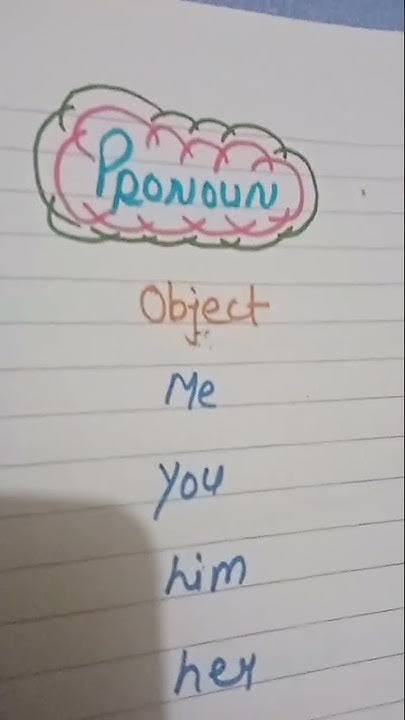 PRONOUN
Object
Me
you
him
her